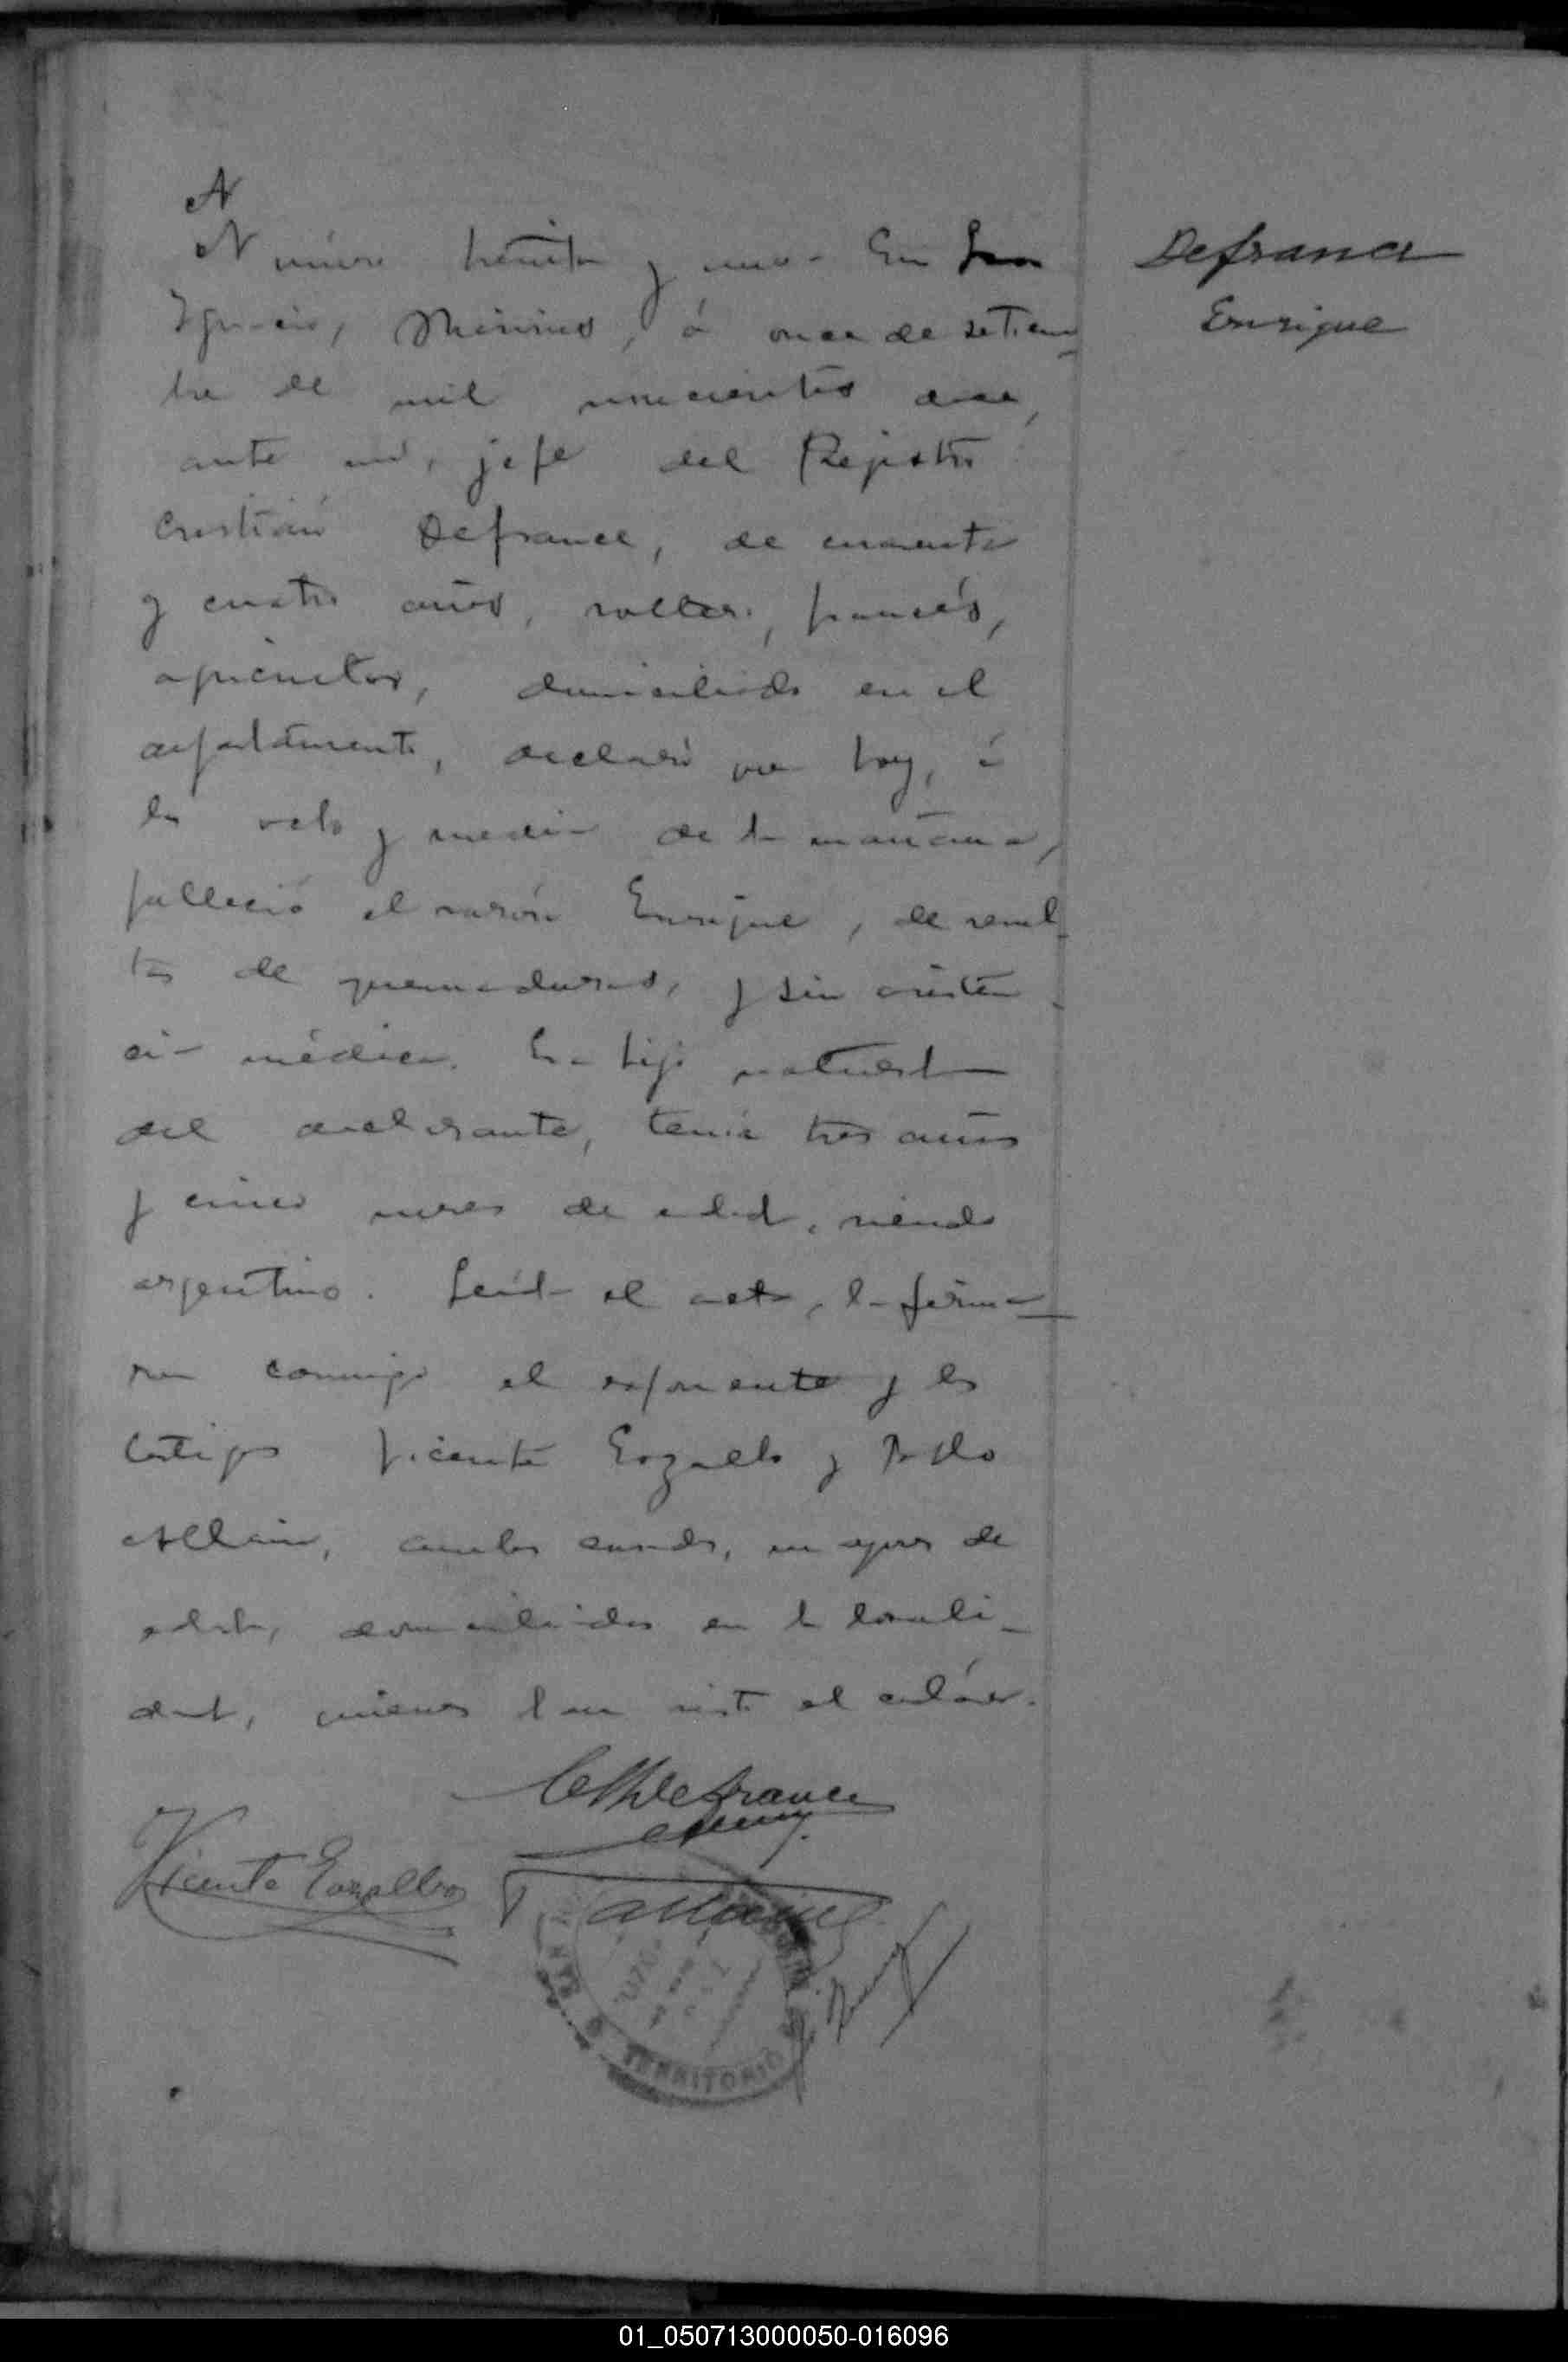 N
Número treinta y uno. En San
Ignacio, Misiones, á once de setiem-
bre de mil novecientos doce,
ante mí, jefe del Registro
Cristián Defrance, de cuarenta
y cuatro años, soltero, francés,
agricultor, domiciliado en el
departamento, declaró que hoy, á
las ocho y media de la mañana,
falleció el varón Enrique, de resul-
tas de quemaduras, y sin asisten-
cia médica. Era hijo natural
del declarante, tenía tres años
y cinco meses de edad, siendo
argentino. Leída el acta, la firma-
ron conmigo el exponente y los
testigos Vicente Gozalbo y Pablo
Allain, ambos casados, mayores de
edad, domiciliados en la locali-
dad, quienes han visto el cadáver.
Defrance
Enrique
Ch Defrance
Vicente Gozalbo
P Allain
TERRITORIO
01_050713000050-016096